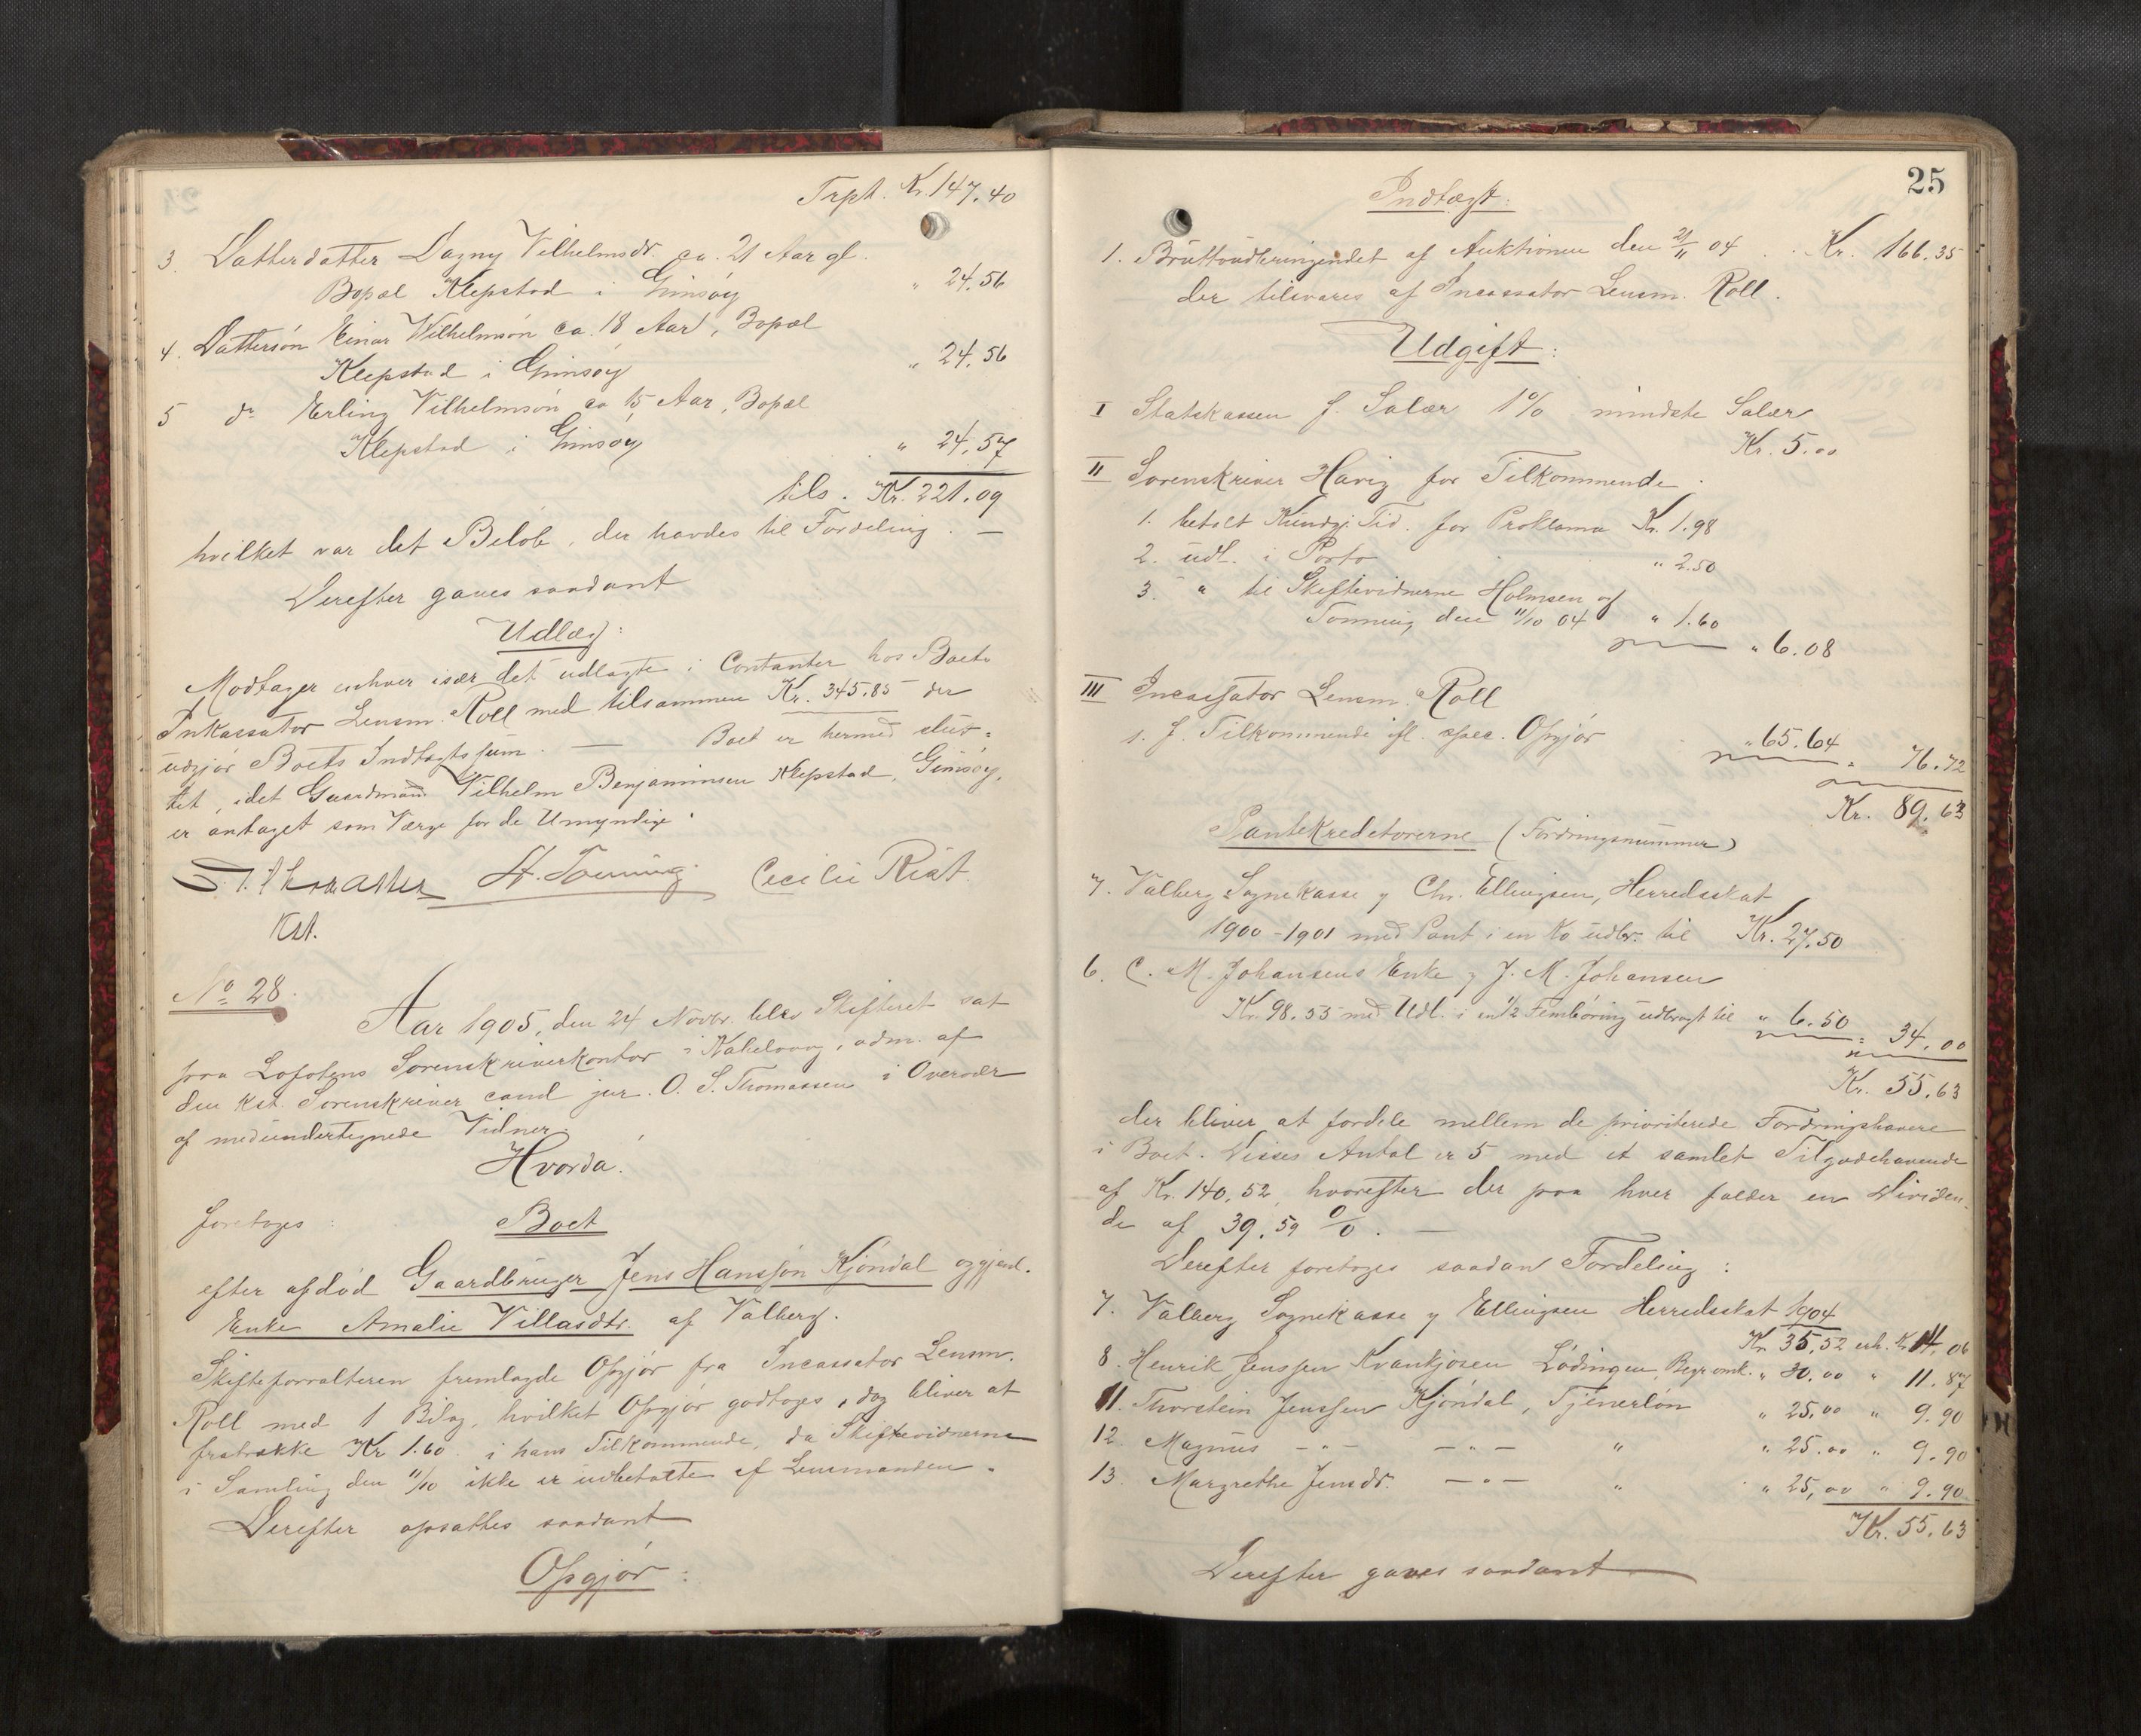 Trpt. Kr. 147.40
3. Datterdatter Dagny Vilhelmsdr. ca. 21 Aar gl.
Bopæl Klepstad i Gimsøy " 24.56
4. Dattersøn Einar Wilhelmsøn ca. 18 Aar, Bopæl
Klepstad i Gimsøy " 24.56
5 do Erling Vilhelmsøn ca 15 Aar, Bopæl
Klepstad i Gimsøy " 24.57
tils. Kr. 221.09
hvilket var det Beløb, der havdes til Fordeling. —
Derefter gaves saadant
Udlæg:
Modtager enhver især det udlagte i Contanter hos Boets
Inkassator Lensm. Roll med tilsammen Kr. 345.85 der
udgjør Boets Indtægtssum. — Boet er hermed slut-
tet, idet Gaardmand Vilhelm Benjaminsen Klepstad, Gimsøy,
er antaget som Værge for de Umyndige.
O. S. Thomassen H. Tønning Cecilie Rist
Kst.
No 28.
Aar 1905, den 24 Novbr. blev Skifteret sat
paa Lofotens Sorenskriverkontor i Kabelvaag, adm. af
den kst. Sorenskriver cand jur. O. S. Thomassen i Overvær
af medundertegnede Vidner.
Hvorda.
foretoges:
Boet
efter afdød Gaardbruger Jens Hanssøn Kjøndal og gjenl.
Enke Amalie Villasdtr. af Valberg.
Skifteforvalteren fremlagde Opgjør fra Incassator Lensm.
Roll med 1 Bilag, hvilket Opgjør godtoges, dog bliver at
fratrække Kr 1.60 i hans Tilkommende, da Skiftevidnerne
i Samling den 11/10 ikke er udbetalte af Lensmanden.
Derefter opsattes saadant
Opgjør:
25
Indtægt:
1. Bruttoudbringendet af Auktionen den 21/11 04 . . Kr. 166.35
der tilsvares af Incassator Lensm. Roll.
Udgift:
I Statskassen f. Salær 1% mindste Salær
Kr. 5.00
II Sorenskriver Havig for Tilkommende.
1. betalt Kundgj. Tid. for Proklama Kr. 1.98
2. udl. i Porto " 2.50
3. " til Skiftevidnerne Holmsen og
Tønning den 11/10 04 " 1.60
" 6.08
III Incassator Lensm. Roll
1. f. Tilkommende ifl. spec. Opgjør " 65.64
" 76.72
Kr. 89.63
Pantekreditorerne (Fordringsnummer)
7. Valberg Sognekasse v Chr. Ellingsen, Herredsskat
1900-1901 med Pant i en Ko udbr. til Kr. 27.50
6. C. M. Johansens Enke v J. M. Johansen
Kr. 98.53 med Udl. i en 1/2 Fembøring udbragt til " 6.50
" 34.00
Kr. 55.63
der bliver at fordele mellem de prioriterede Fordringshavere
i Boet. Disses Antal er 5 med et samlet Tilgodehavende
af Kr. 140,52, hvorefter der paa hver falder en Dividen-
de af 39.59 %. —
Derefter foretoges saadan Fordeling:
7. Valberg Sognekasse v Ellingsen Herredsskat 1904
Kr 35.52 erh. Kr 14,06
8. Henrik Jenssen Kvankjosen Lødingen, Begr.omk. " 30.00 " 11.87
11. Thorstein Jenssen Kjøndal, Tjenerløn " 25.00 " 9.90
12. Magnus — " — — " — " " 25.00 " 9.90
13. Margrethe Jensdr. — " — " " 25,00 " 9.90
Kr. 55.63
Derefter gaves saadant